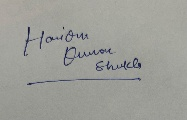 Hariom
Kumar
Shukla